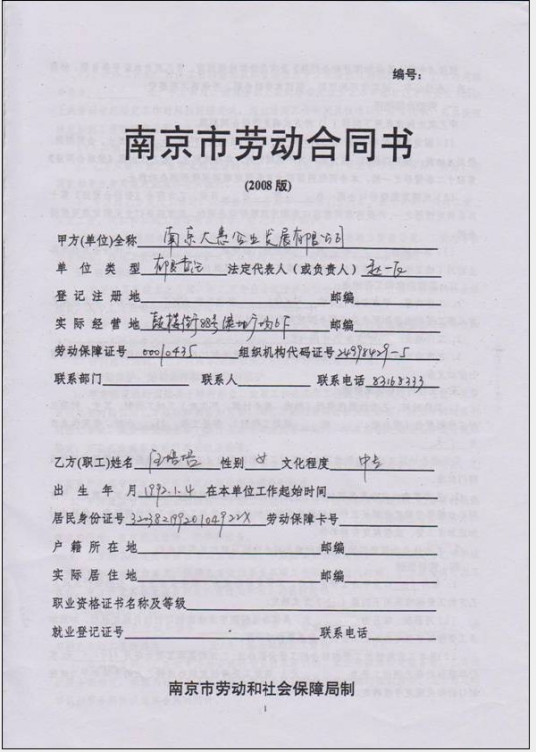 编号：
南京市劳动合同书
(2008 版)
甲方(单位)全称 南京大惠企业发展有限公司
单位类型 有限 法定代表人（或负责人）
登记注册地 邮编
实际经营地 鼓楼街88号 邮编
劳动保障证号 00010435 组织机构代码证号 24998429-5
联系部门 联系人 联系电话 83168333
乙方(职工)姓名 性别 女 文化程度 中专
出生年月 1992.1.4 在本单位工作起始时间
居民身份证号 劳动保障卡号
户籍所在地 邮编
实际居住地 邮编
职业资格证书名称及等级
就业登记证号 联系电话
南京市劳动和社会保障局制
1